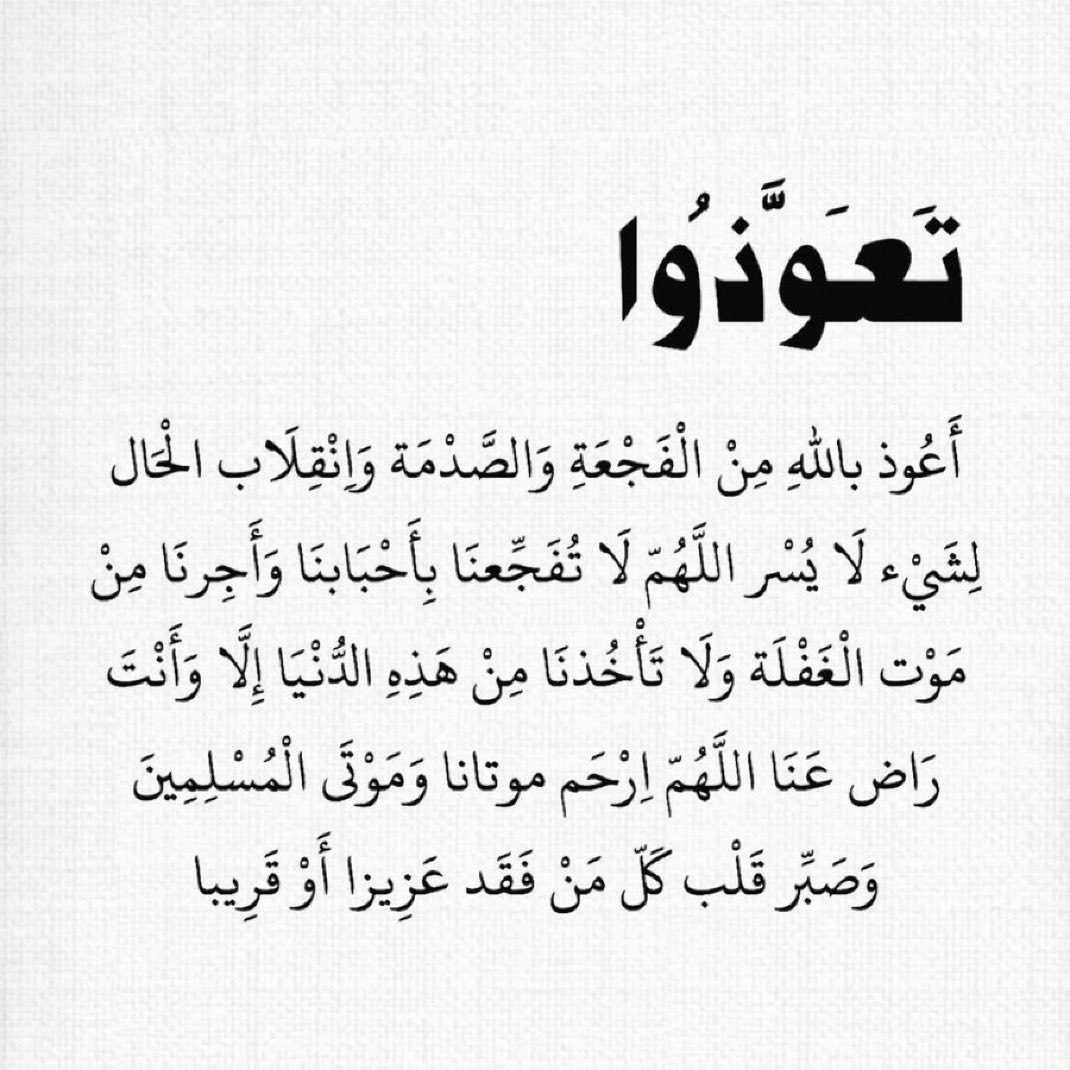 تَعَوَّذُوا
أَعُوذ بالله مِنْ الْفَجْعَةِ وَالصَّدْمَة وَاِنْقِلَاب الْحَال
لِشَيْء لَا يُسْر اللَّهُمّ لَا تُفَجِّعنَا بِأَحْبَابنَا وَأَجِرنَا مِنْ
مَوْت الْغَفْلَة وَلَا تَأْخُذنَا مِنْ هَذِهِ الدُّنْيَا إِلَّا وَأَنْتَ
رَاض عَنَا اللَّهُمّ اِرْحَم موتانا وَمَوْتَى الْمُسْلِمِينَ
وَصَبِّر قَلْب كَلّ مَنْ فَقَد عَزِيزا أَوْ قَرِيبا